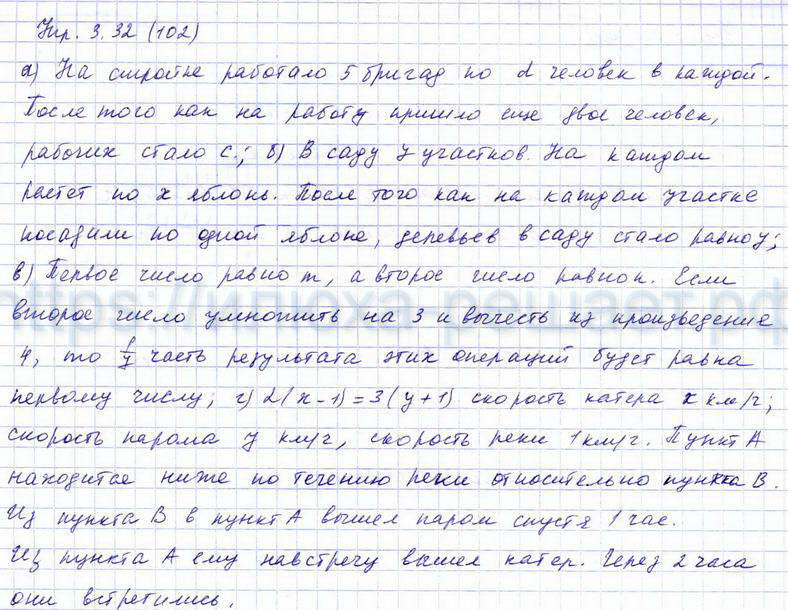 Упр. 3.32 (102)
а) На стройке работало 5 бригад по d человек в каждой.
После того как на работу пришло еще двое человек,
рабочих стало с.; б) В саду 7 участков. На каждом
растет по x яблонь. После того как на каждом участке
посадили по одной яблоне, деревьев в саду стало равно y;
в) Первое число равно m, а второе число равно n. Если
второе число умножить на 3 и вычесть из произведение
4, то 1/7 часть результата этих операций будет равна
первому числу; г) 2(x-1)=3(y+1) скорость катера x км/г;
скорость парома y км/г, скорость реки 1 км/г. Пункт А
находится ниже по течению реки относительно пункта В.
Из пункта В в пункт А вышел паром спустя 1 час.
Из пункта А ему навстречу вышел катер. Через 2 часа
они встретились.